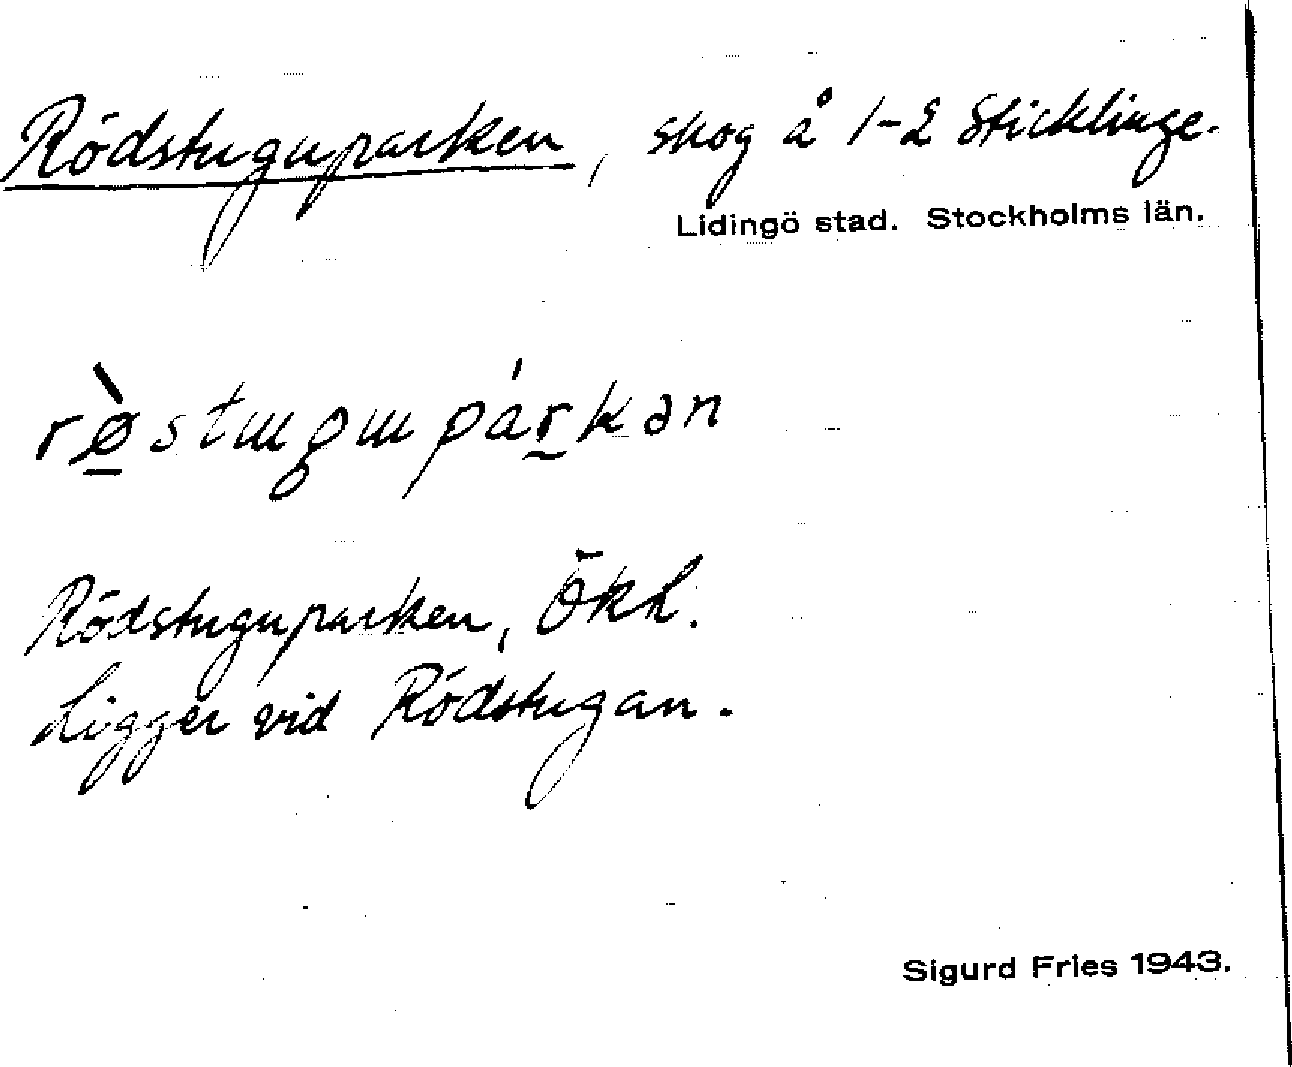 Rödstuguparken, skog å 1-2 Sticklinge.
Lidingö stad. Stockholms län.
rø̀stɯgɯpárkən
Rödstuguparken, Ökk.
Ligger vid Rödstugan.
Sigurd Fries 1943.